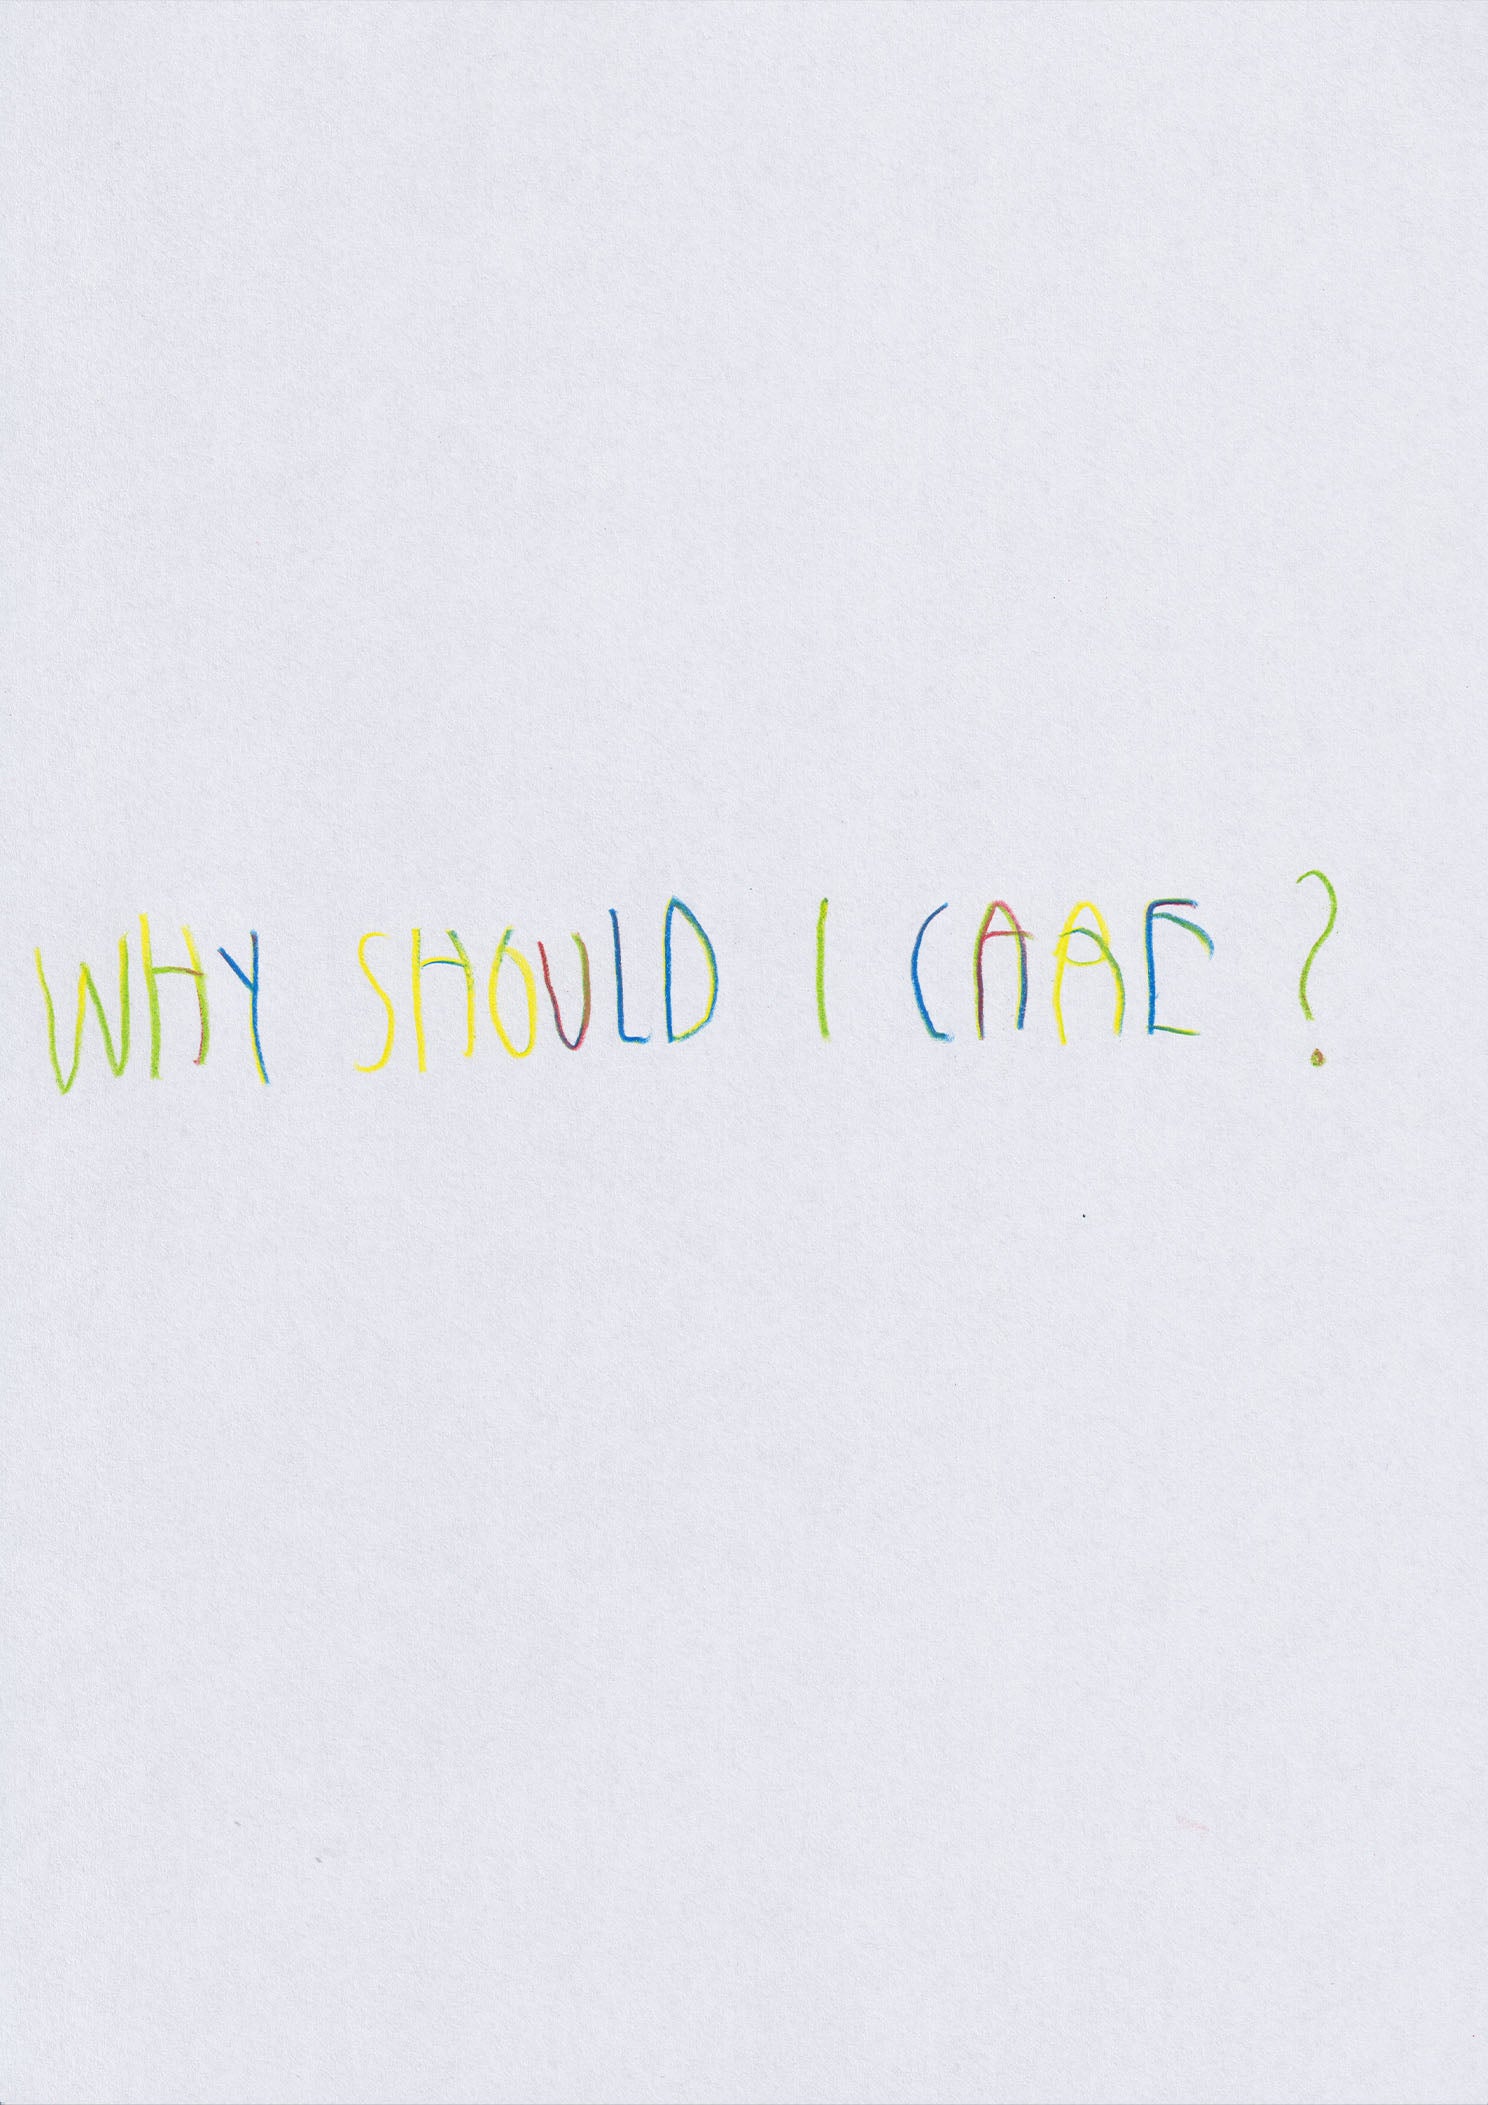 WHY SHOULD I CARE ?